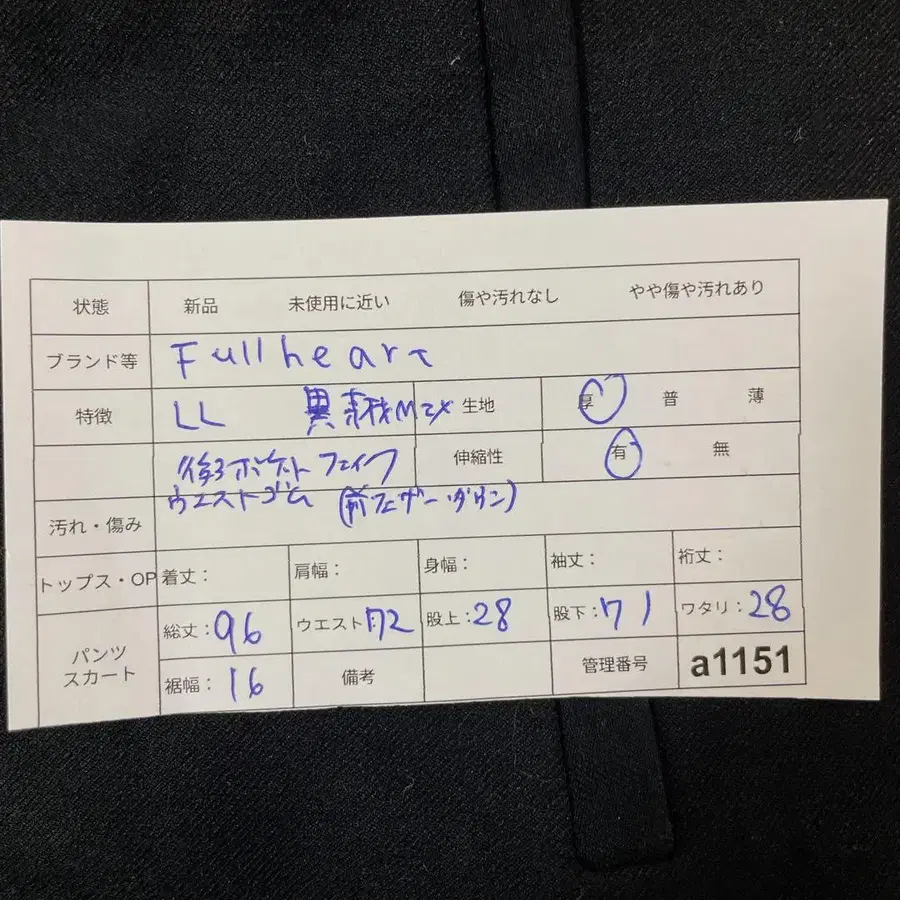 状態 新品 未使用に近い 傷や汚れなし やや傷や汚れあり
ブランド等 Fullheart
特徴 LL 異素材MIX 生地 厚 普 薄
後ろポケットフェイク 伸縮性 有 無
ウエストゴム (前フェザーダウン)
汚れ・傷み
トップス・OP 着丈: 肩幅: 身幅: 袖丈: 裄丈:
パンツ スカート 総丈:96 ウエスト:72 股上:28 股下:71 ワタリ:28
裾幅:16 備考 管理番号 a1151